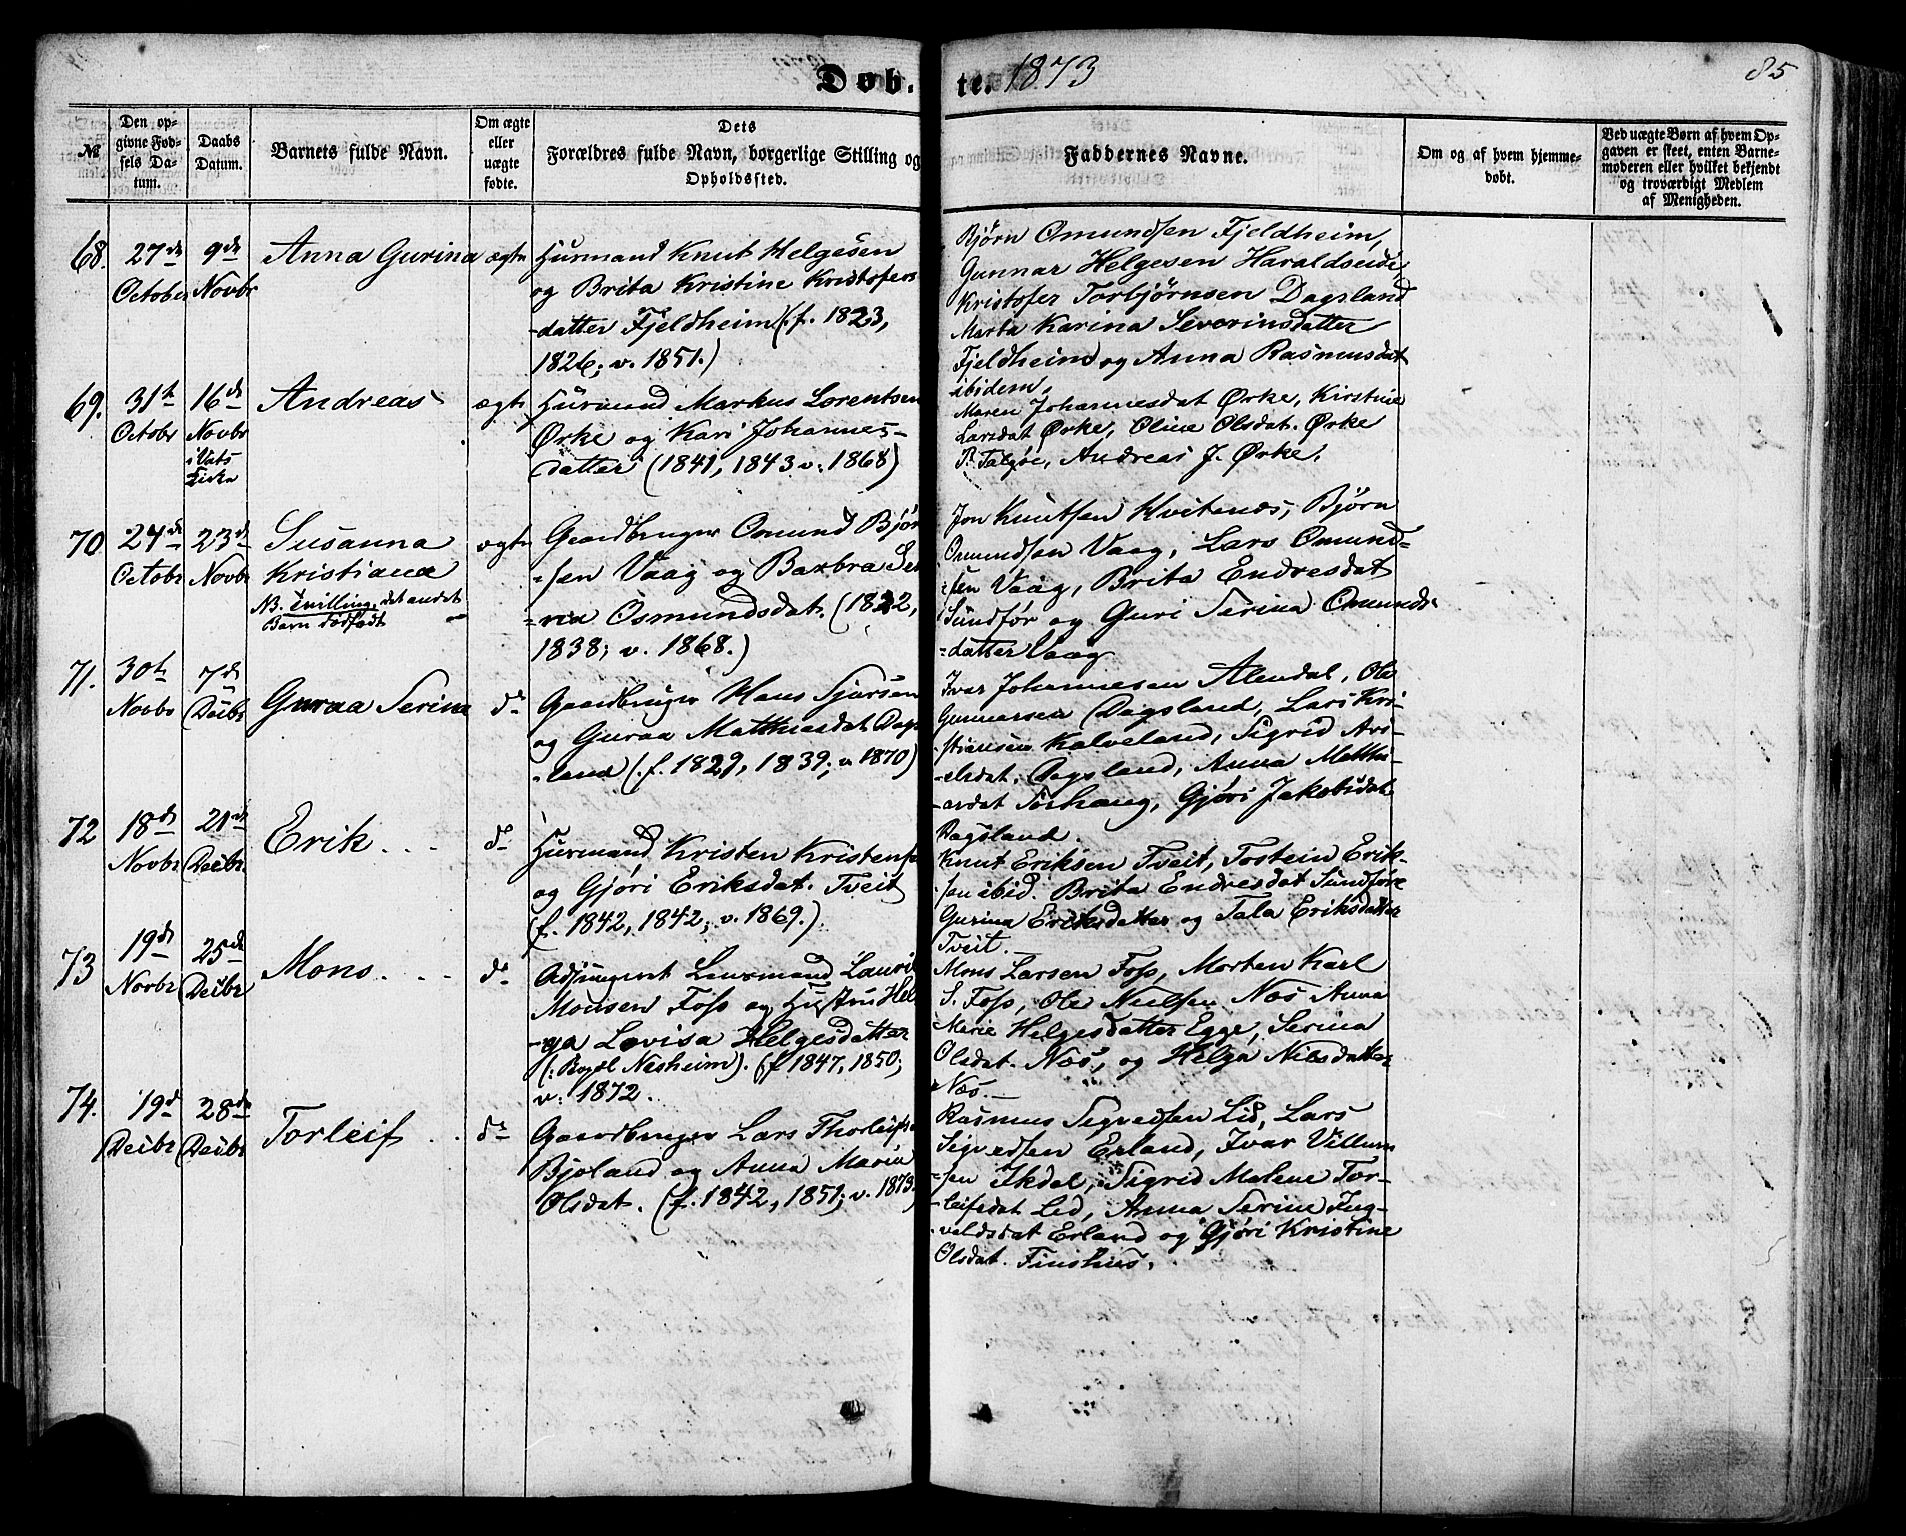 Døb. te. 1873
85
№
Den op-
givne Fød-
sels Da-
tum.
Daabs
Datum.
Barnets fulde Navn.
Om ægte
eller
uægte
fødte.
Dets
Forældres fulde Navn, borgerlige Stilling og
Opholdssted.
Faddernes Navne.
Om og af hvem hjemme-
døbt.
Ved uægte Børn af hvem Op-
gaven er skeet, enten Barne-
moderen eller hvilket bekjendt
og troværdigt Medlem
af Menigheden.
68.
27de
October
9de
Novbr
Anna Gurina
ægte
Huusmand Knut Helgesen
og Brita Kristine Kristofers
-datter Fjeldheim (:f. 1823,
1826; v. 1851.)
Bjørn Omundsen Fjeldheim,
Gunnar Helgesen Haraldseide,
Kristofer Torbjørnsen Dagsland
Marta Karina Severinsdatter
Fjeldheim og Anna Rasmusdat
ibidem.
69.
31te
Octobr
16de
Novbr
i Vats
Kirke
Andreas
ægte
Huusmand Markus Lorentsen
Ørke og Kari Johannes-
datter (1841, 1843 v. 1868)
Maren Johannesdat Ørke, Kirstine
Larsdat Ørke, Oline Olsdat. Ørke
P. Talgøe, Andreas J. Ørke.
70
24de
Octobr
23de
Novbr
Susanna
Kristiana
NB. Tvilling, det andet
Barn dødfødt
ægte
Gaardbruger Omund Bjørn
=sen Vaag og Barbra Se
=ria Osmundsdat. (1822,
1838; v. 1868.)
Jon Knutsen Hvitenæs, Bjørn
Omundsen Vaag, Lars Omund-
=sen Vaag, Brita Endresdat
Sundfør og Guri Serina Omunds
=datter Vaag
71.
30te
Novbr
7de
Decbr
Guraa Serine
do
Gaardbruger Hans Sjursen
og Guraa Matthiasdat Dags
-land (.f. 1829, 1839; v. 1870)
Ivar Johannesen Alendal, Ole
Gunnarsen Dagsland, Lars Kri-
stiansen Kalveland, Sigrid Ars-
-elsdat. Dagsland, Anna Matthi-
-asdat Torhaug, Gjøri Jakobsdat.
Dagsland.
72
18de
Novbr
21de
Decbr.
Erik
do
Huusmand Kristen Kristens
og Gjøri Eriksdat. Tveit
(f. 1842, 1842; v. 1869.)
Knut Eriksen Tveit, Tostein Erik-
-sen ibid. Brita Endresdat Sundføre
Gurina Eriksdatter og Tala Eriksdatter
Tveit.
73
19de
Novbr
25de
Decbr
Mons
do
Adjungeret Lensmand Lauri
Monsen Foss og Hustru Hel
-ga Lovisa Helgesdatter
(: Bopæl Nesheim). (f 1847, 1850;
v. 1872.
Mons Larsen Foss, Morten Karl
S. Foss, Ole Nielsen Næs Anna
Marie Helgesdatter Egge, Serina
Olsdat. Næs, og Helga Nilsdatter
Næs.
74.
19de
Decbr
28de
Decbr
Torleif
do
Gaardbruger Lars Thorleifs
Bjoland og Anna Maria
Olsdat. (f. 1842, 1851; v. 1873)
Rasmus Sigvedsen Lid, Lars
Sigvedsen Erland, Ivar Villum
-sen Ikdal, Sigrid Malene Tor-
-leifsdat Lid, Anna Serine Ing-
veldsdat Erland og Gjøri Kristine
Olsdat. Finshus.